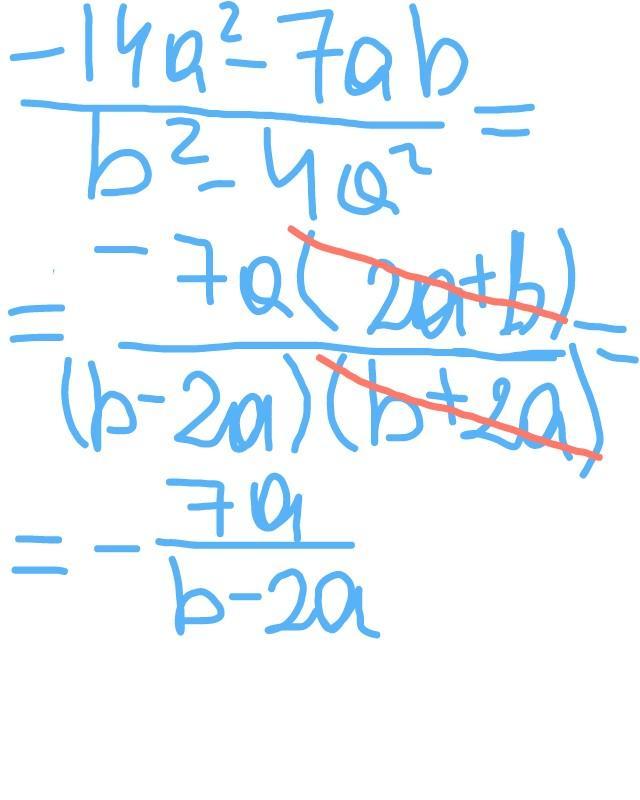 -14a² - 7ab
b² - 4a² =
= -7a(2a+b)
(b-2a)(b+2a) =
= - 7a
b-2a